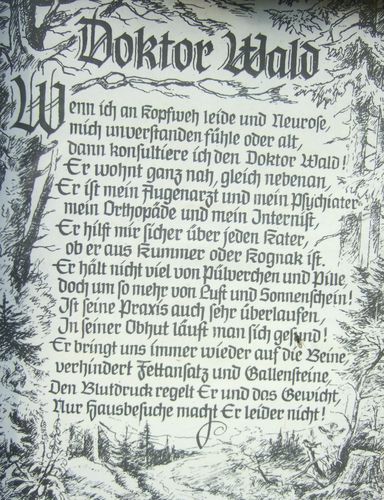 Doktor Wald
Wenn ich an Kopfweh leide und Neurose,
mich unverstanden fühle oder alt,
dann konsultiere ich den Doktor Wald!
Er wohnt ganz nah, gleich nebenan,
Er ist mein Augenarzt und mein Psychiater
mein Orthopäde und mein Internist,
Er hilft mir sicher über jeden Kater,
ob er aus Kummer oder Kognak ist.
Er hält nicht viel von Pülverchen und Pille,
doch um so mehr von Luft und Sonnenschein!
Ist seine Praxis auch sehr überlaufen,
In seiner Obhut läuft man sich gesund!
Er bringt uns immer wieder auf die Beine,
verhindert Fettansatz und Gallensteine,
Den Blutdruck regelt Er und das Gewicht,
Nur Hausbesuche macht Er leider nicht!